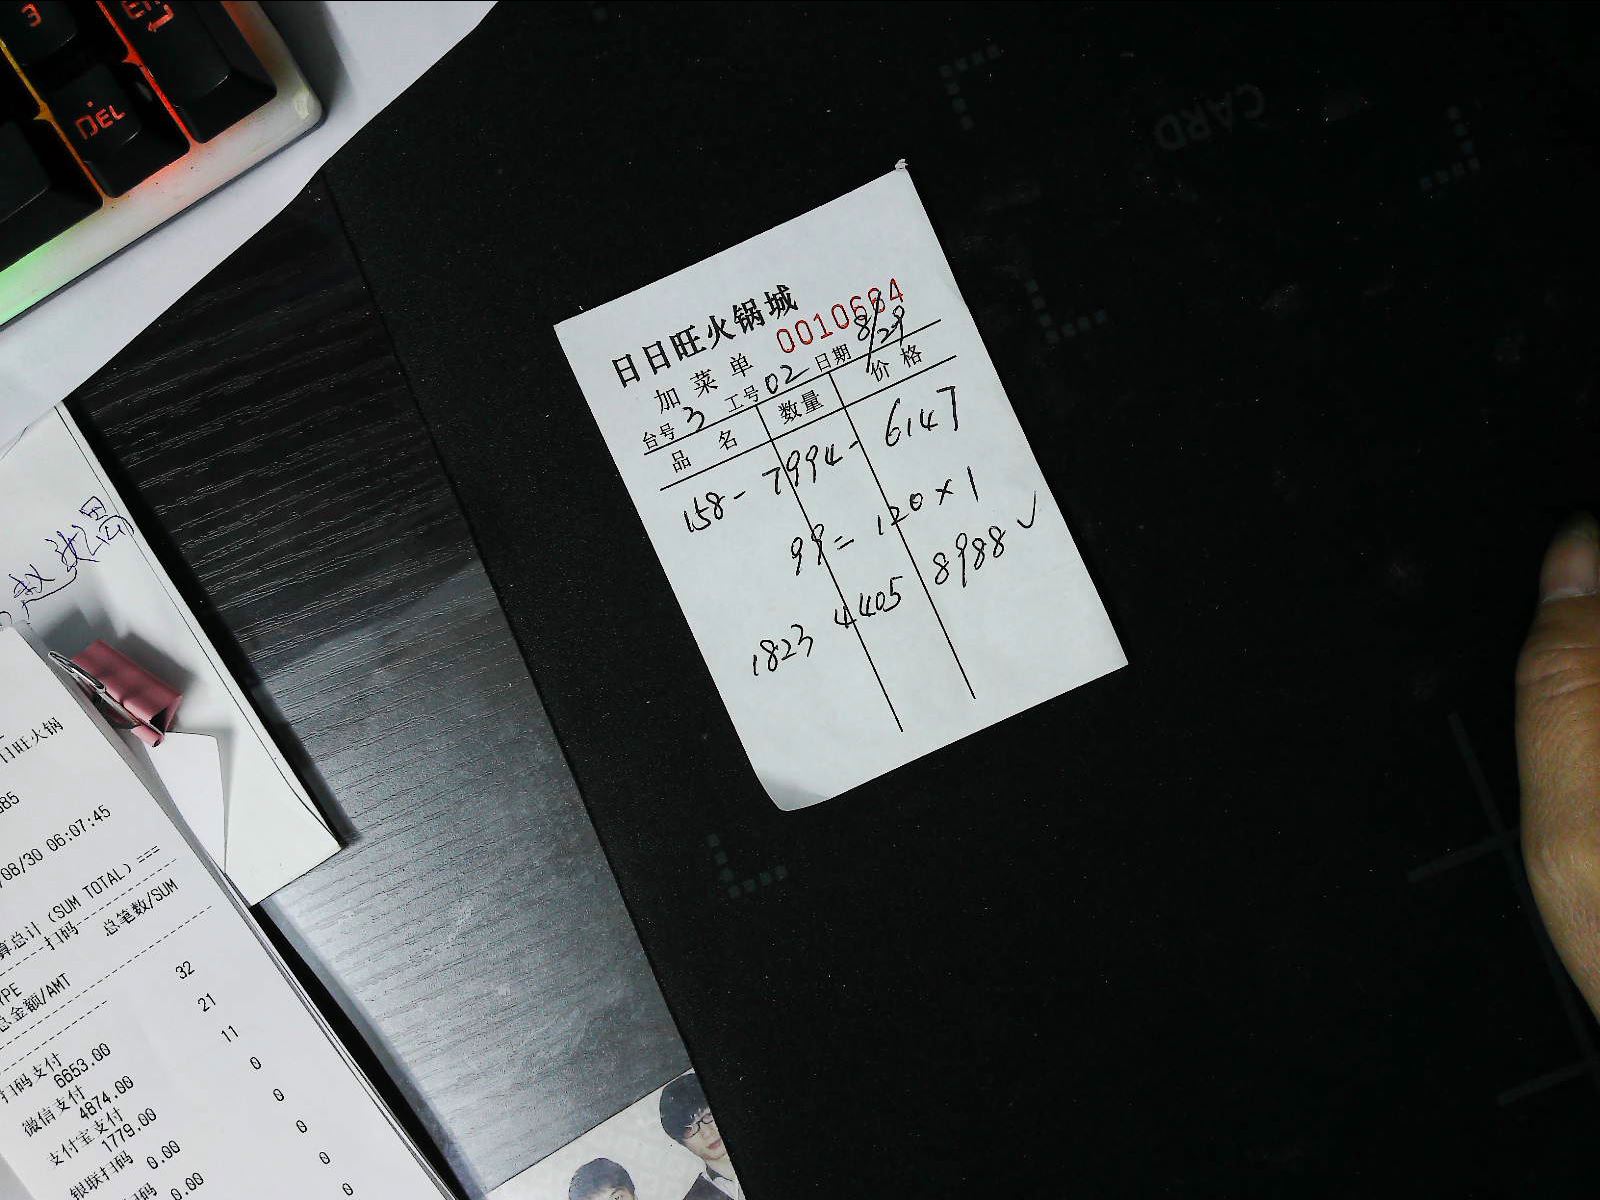 3
En
DEL
CARD
日日旺火锅城
加菜单 0010684
台号 3 工号 02 日期 8/29
品名 数量 价格
158- 7994- 6147
99=120×1
1823 4405 8988✓
日旺火锅
/08/30 06:07:45
算总计(SUM TOTAL)===
扫码
总笔数/SUM
总金额/AMT
32
扫码支付
6653.00
21
微信支付
4874.00
11
支付宝支付
1779.00
0
银联扫码
0.00
0
0.00
0
0
0